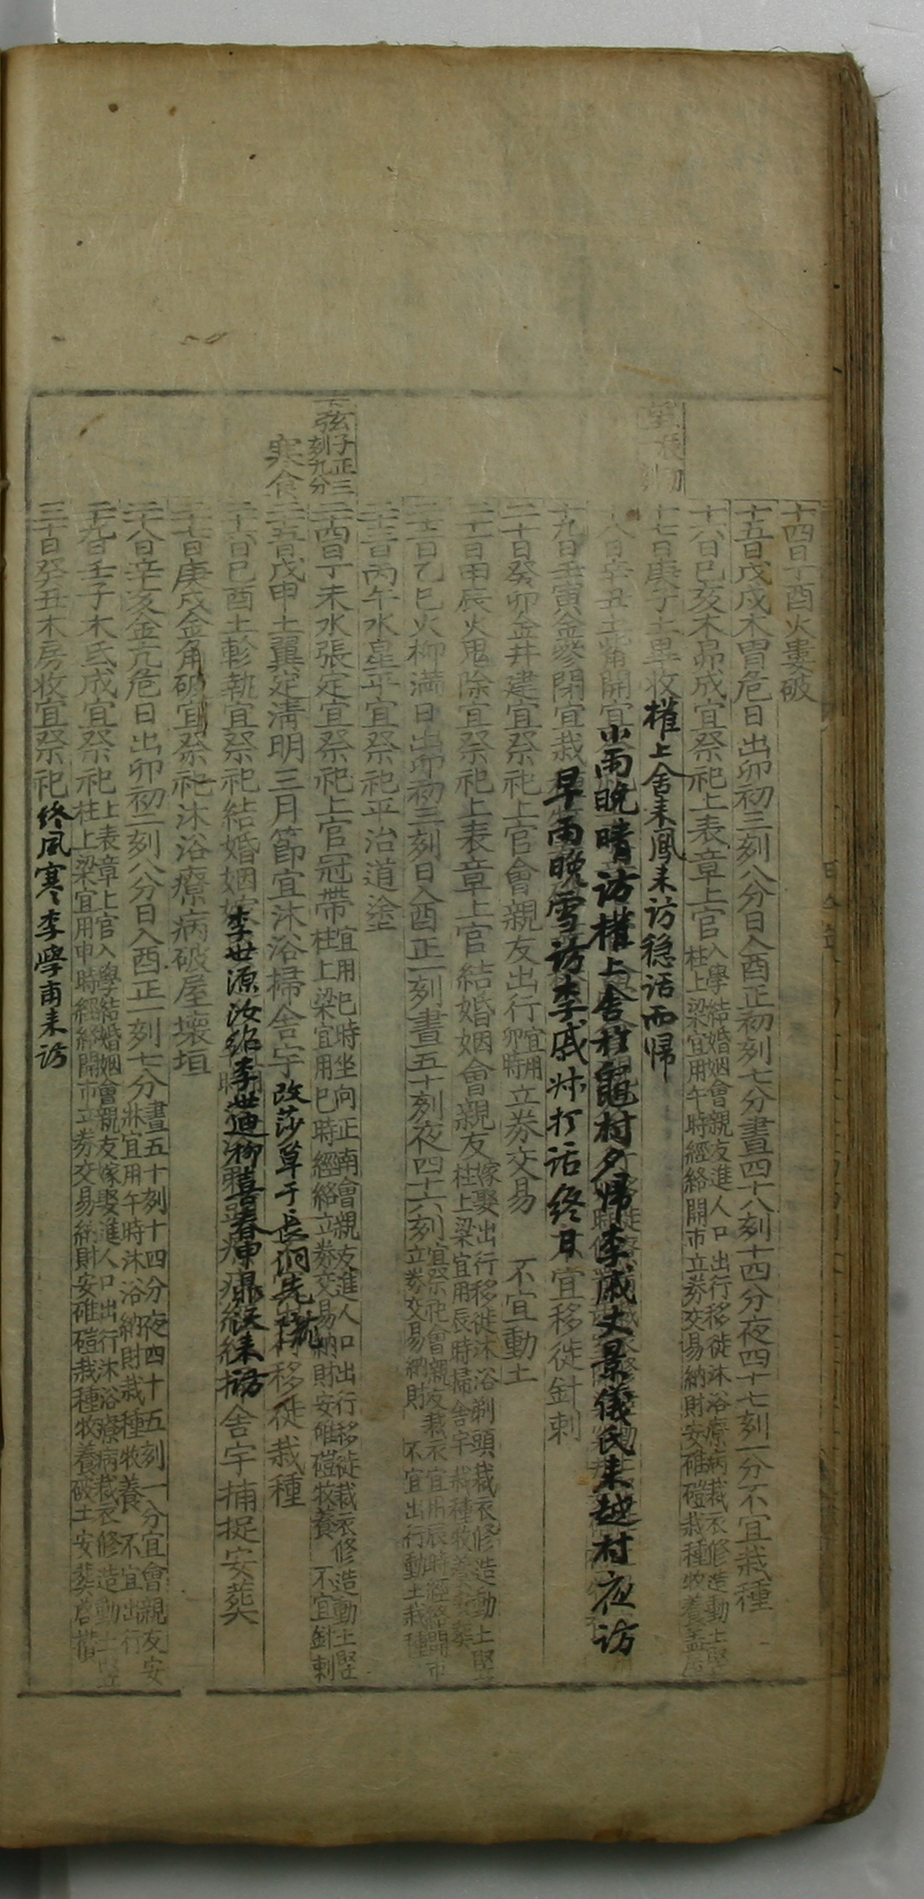 十四日丁酉火婁破
十五日戊戌木胃危日出卯初三刻八分日入酉正初刻七分晝四十八刻十四分夜四十七刻一分不宜栽種
十六日己亥木昴成宜祭祀上表章上官入學結婚姻會親友進人口出行移徙沐浴療病裁衣修造動土竪
柱上梁宜用午時經絡開市立券交易納財安碓磑栽種牧養
十七日庚子土畢收 權上舍来鳳来访穏话而帰
八日辛丑土觜開宜 小雨晩晴访權上舍於龜村夕帰李戚丈景儀氏来越村夜访
十九日壬寅金參閉宜栽 早雨晩雪访李戚 打话終日 宜移徙針刺
二十日癸卯金井建宜祭祀上官會親友出行宜用卯時立券交易 不宜動土
二十一日甲辰火鬼除宜祭祀上表章上官結婚姻會親友嫁娶出行移徙沐浴剃頭裁衣修造動土竪
柱上梁宜用辰時掃舍宇栽種牧養
二十二日乙巳火柳滿日出卯初三刻日入酉正一刻晝五十刻夜四十六刻宜祭祀會親友裁衣宜用辰時經絡開市
立券交易納財 不宜出行動土栽種
二十三日丙午水星平宜祭祀平治道塗
下弦子正三刻九分
二十四日丁未水張定宜祭祀上官冠帶宜用巳時坐向正南會親友進人口出行移徙裁衣修造動土竪
柱上梁宜用巳時經絡立券交易納財安碓磑牧養 不宜針刺
寒食
二十五日戊申土翼定淸明三月節宜沐浴掃舍宇 改莎草于長洞先 移徙栽種
二十六日己酉土軫執宜祭祀結婚姻 李世源汝 李世迪 喜春申 来访 舍宇捕捉安葬
二十七日庚戌金角破宜祭祀沐浴療病破屋壞垣
二十八日辛亥金亢危日出卯初二刻八分日入酉正一刻七分晝五十刻十四分夜四十五刻一分宜會親友安
牀宜用午時沐浴納財栽種牧養 不宜出行
二十九日壬子木氐成宜祭祀上表章上官入學結婚姻會親友嫁娶進人口出行沐浴療病裁衣修造動土竪
柱上梁宜用申時經絡開市立券交易納財安碓磑栽種牧養破土安葬啓攅
三十日癸丑木房收宜祭祀 終風寒李學甫来访